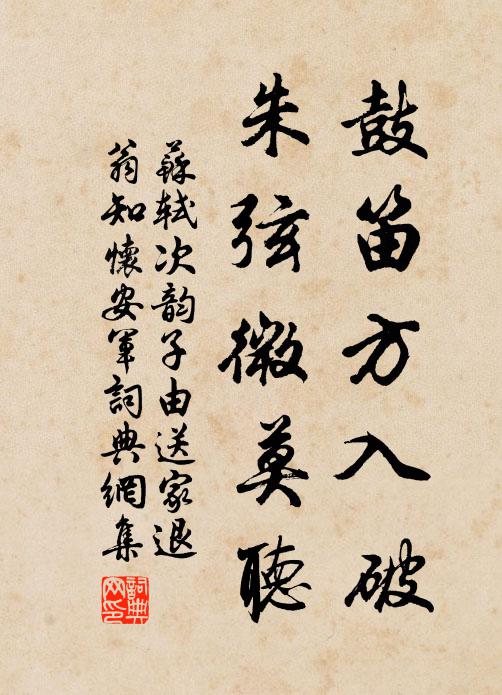 鼓笛方入破
朱弦微莫聽
蘇軾次韵子由送家退
翁知懷安軍詞典網集
詞典
网印